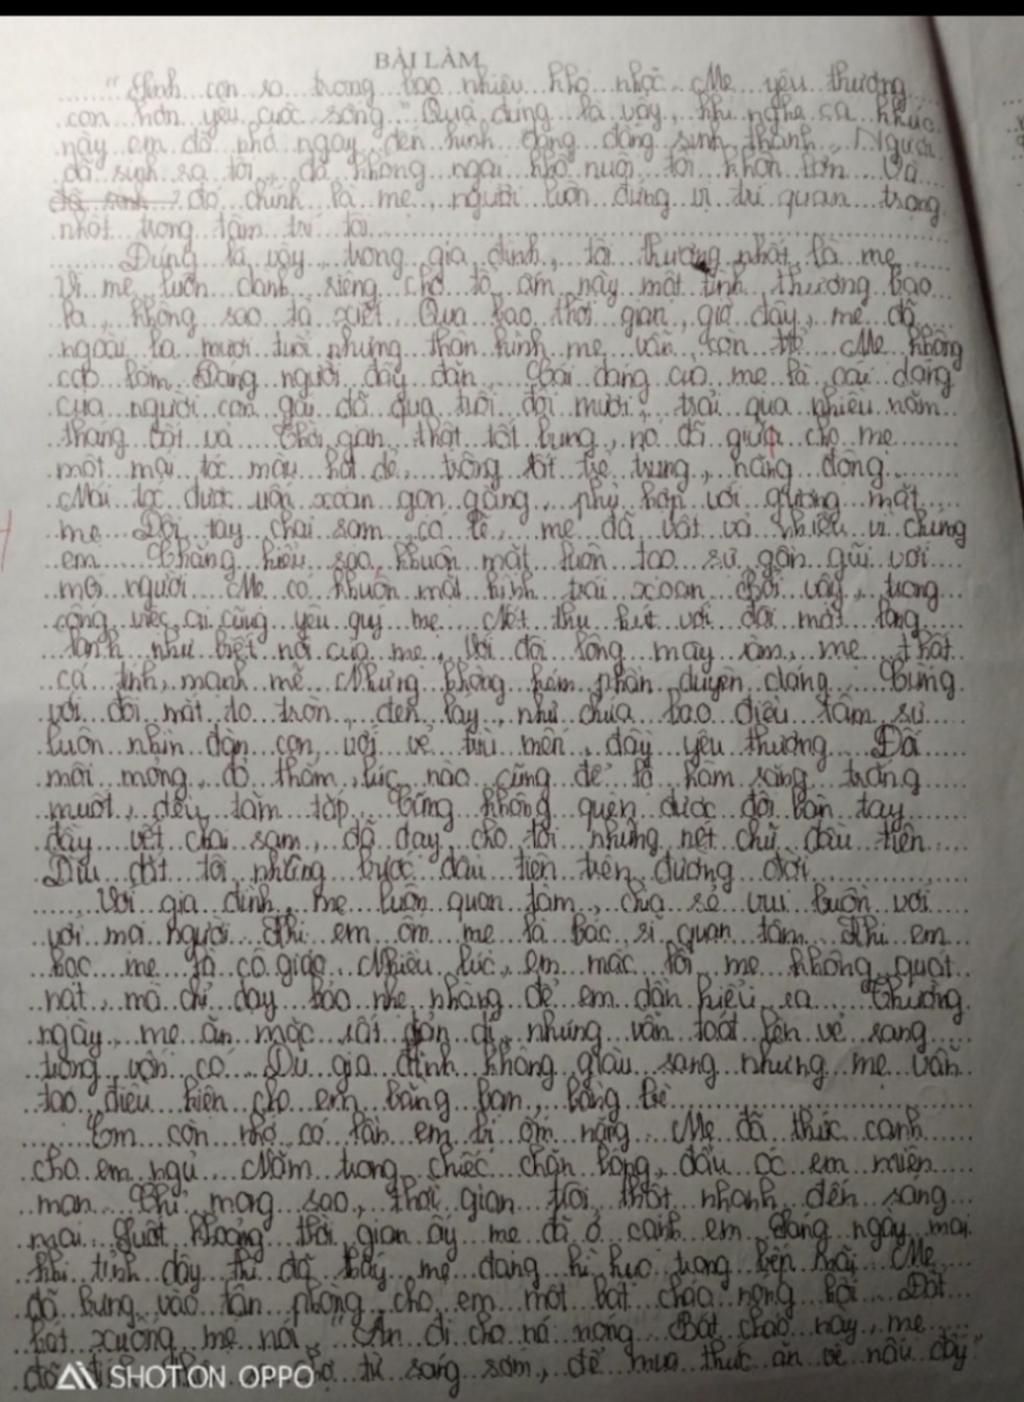 BÀI LÀM
"Sinh con ra trong bao nhiêu khó nhọc. Mẹ yêu thương
con hơn yêu cuộc sống" Quả đúng là vậy, khi nghe ca khúc
này em đã nhớ ngay đến hình dáng đấng sinh thành. Người
đã sinh ra tôi, đã không ngại khó nuôi tôi khôn lớn. Và
đó chính là mẹ, người luôn đứng vị trí quan trọng
nhất trong tâm trí tôi.
Đúng là vậy, trong gia đình, tôi thương nhất là mẹ
Vì mẹ luôn dành riêng cho tổ ấm này một tình thương bao
la, không sao tả xiết. Qua bao thời gian, giờ đây, mẹ đã
ngoài ba mươi tuổi nhưng thân hình mẹ vẫn còn trẻ. Mẹ không
cao lắm. Dáng người đầy đặn. Cái dáng của mẹ là cái dáng
của người con gái đã qua tuổi đôi mươi, trải qua nhiều năm
tháng vất vả. Thời gian thật tốt bụng, nó đã giữ cho mẹ
một mái tóc màu hạt dẻ, trông rất trẻ trung, năng động.
Mái tóc được uốn xoăn gọn gàng, phù hợp với gương mặt
mẹ. Đôi tay chai sạm, có lẽ, mẹ đã vất vả nhiều vì chúng
em. Chẳng hiểu sao, khuôn mặt luôn tạo sự gần gũi với
mọi người. Mẹ có khuôn mặt hình trái xoan. Bởi vậy, trong
công việc, ai cũng yêu quý mẹ. Nét thu hút với đôi mắt long
lanh như biết nói của mẹ. Với đôi lông mày rậm, mẹ thật
cá tính, mạnh mẽ. Nhưng không kém phần duyên dáng. Cùng
với đôi mắt to tròn, đen láy, như chứa bao điều tâm sự
luôn nhìn đàn con với vẻ trìu mến, đầy yêu thương. Đôi
môi mỏng, đỏ thắm, lúc nào cũng để lộ hàm răng trắng
muốt, đều tăm tắp. Cũng không quên được đôi bàn tay
đầy vết chai sạm, đã dạy cho tôi những nét chữ đầu tiên.
Dìu dắt tôi những bước đầu tiên trên đường đời.
Với gia đình, mẹ luôn quan tâm, chia sẻ vui buồn với
với mọi người. Khi em ốm mẹ là bác sĩ quan tâm. Khi em
học mẹ là cô giáo. Nhiều lúc, em mắc lỗi mẹ không quát
nát, mà chỉ dạy bảo nhẹ nhàng để em dần hiểu ra. Thường
ngày, mẹ ăn mặc rất giản dị, nhưng vẫn toát lên vẻ sang
trọng vốn có. Dù gia đình không giàu sang nhưng mẹ vẫn
tạo điều kiện cho em bằng bạn, bằng bè.
Em còn nhớ, có lần em bị ốm nặng. Mẹ đã thức canh
cho em ngủ. Nằm trong chiếc chăn bông, đầu óc em miên
man. Chỉ mong sao, thời gian trôi thật nhanh đến sáng
mai. Suốt khoảng thời gian ấy mẹ đã ở cạnh em. Sáng ngày mai
khi tỉnh dậy thì đã thấy mẹ đang hì hục trong bếp rồi. Mẹ
đã bưng vào tận phòng cho em một bát cháo nóng hổi. Đặt
bát xuống mẹ nói "Ăn đi cho nó nóng. Bát cháo này, mẹ
từ sáng sớm, để mua thức ăn về nấu đấy"
SHOT ON OPPO